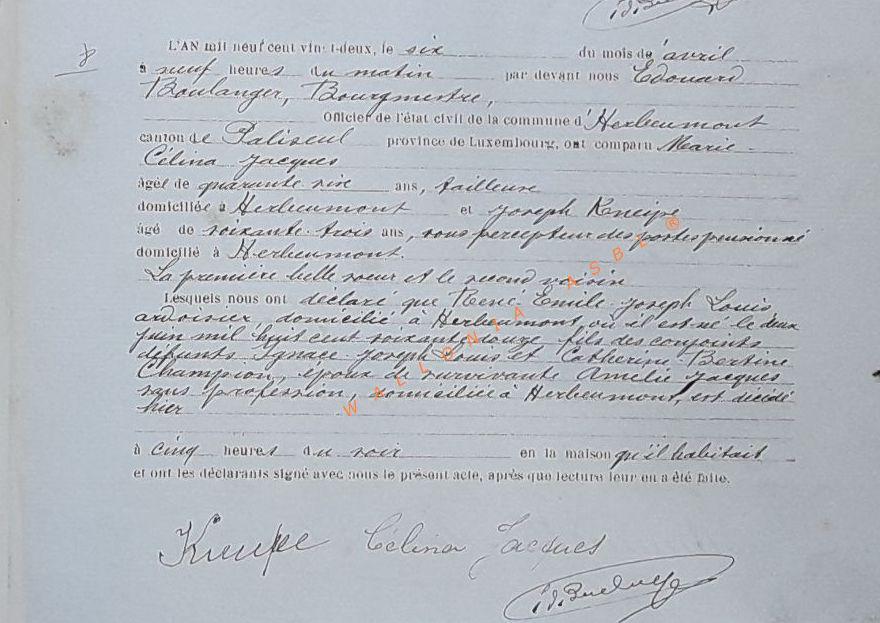 8
L'AN mil neuf cent vingt-deux, le six du mois de avril
à neuf heures du matin par devant nous Edouard
Boulanger, Bourgmestre,
Officier de l'état civil de la commune d'Herbeumont
canton de Paliseul province de Luxembourg, ont comparu Marie-
Célina Jacques
âgée de quarante six ans, tailleuse
domiciliée à Herbeumont et Joseph Kneipe
âgé de soixante-trois ans, sous percepteur des postes pensionné
domicilié à Herbeumont.
La première belle soeur et le second voisin
Lesquels nous ont déclaré que René-Emile-Joseph Louis
ardoisier, domicilié à Herbeumont, où il est né le deux
juin mil huit cent soixante douze, fils des conjoints
défunts Ignace-Joseph Louis et Catherine-Bertine
Champion, époux de survivante Amélie Jacques
sans profession, domiciliée à Herbeumont, est décédé
hier
à cinq heures du soir en la maison qu'il habitait
et ont les déclarants signé avec nous le présent acte, après que lecture leur en a été faite.
Kneipe Célina Jacques
WALLONIA ASBL ®